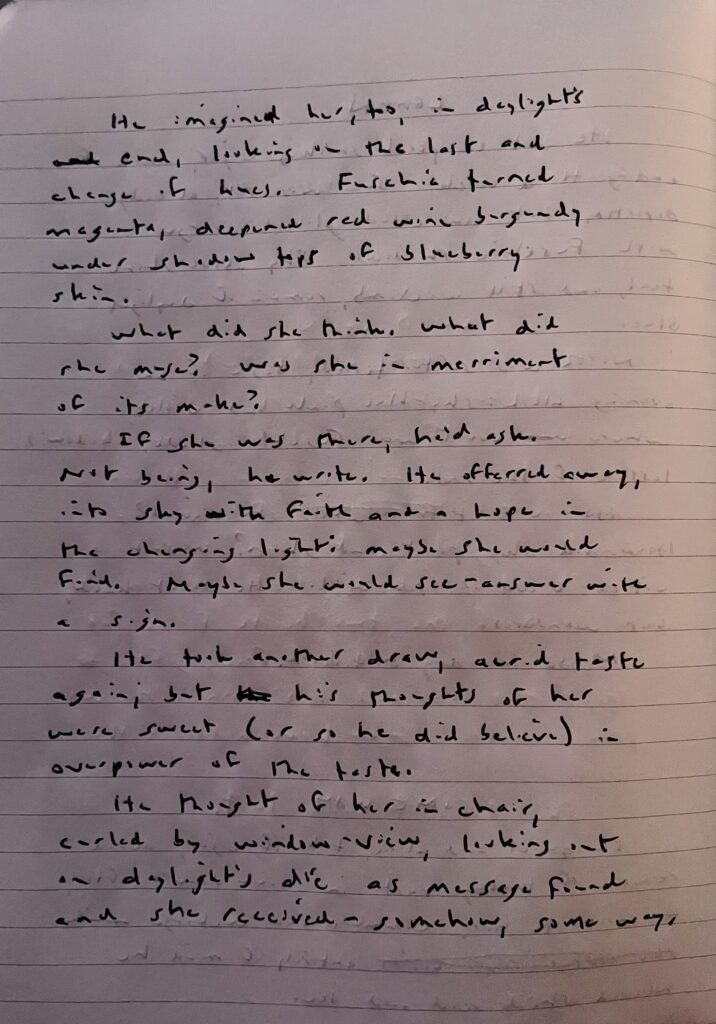 He imagined her, too, in daylight's
end, looking on the last and
change of hues. Fuschia turned
magenta, deepened red wine burgundy
under shadow tops of blueberry
skin.
What did she think. What did
she muse? Was she in merriment
of its make?
If she was there, he'd ask.
Not being, he write. He offerred away,
into sky with faith and a hope in
the changing light: maybe she would
find. Maybe she would see-answer with
a sign.
He took another draw, acrid taste
again; but his thoughts of her
were sweet (or so he did believe) in
overpower of the taste.
He thought of her in chair,
curled by window-view, looking out
on daylight's die as message found
and she received - somehow, some way.